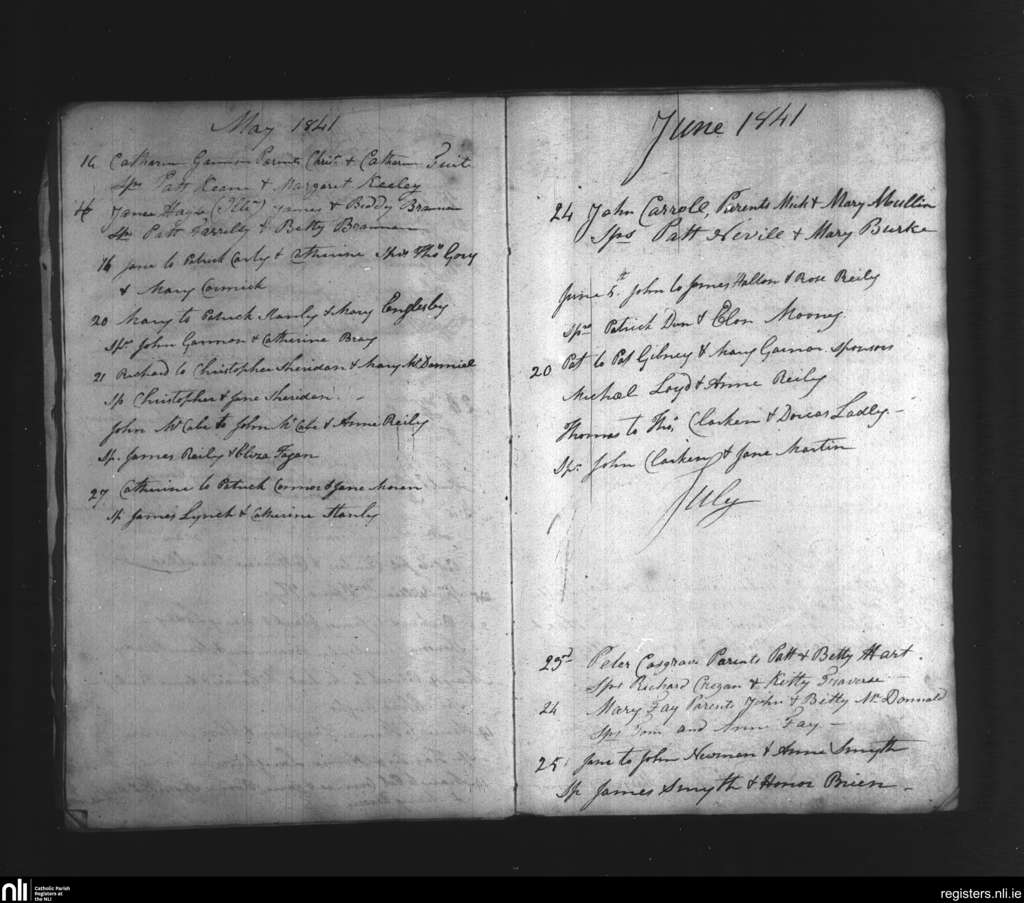 May 1841
16 Catharin Gannon Parents Christ. & Catharin Tuit
Sps Patt Keam & Margaret Keeley
16 James Hays James & Biddy Brannan
Sps Patt Farrelly & Betty Brannan
16 Jane to Patrick Carly & Catherine Spss Thos Gory
& Mary Cormick
20 Mary to Patrick Manly & Mary Englesby
Sps John Gannon & Catherine Bray
21 Richard to Christopher Sheridan & Mary McDanniel
Sp Christopher & Jane Sheridan
John McCabe to John McCabe & Anne Reily
Sp. James Reily & Eliza Fagan
27 Catherine to Patrick Connor & Jane Moran
Sp James Lynch & Catherine Hanly
June 1841
24 John Carroll, Parents Mick & Mary Mullin
Sps Patt Nevill & Mary Burke
June 5th John to James Halton & Rose Reily
Sps Patrick Dun & Elon Mooney
20 Pat to Pat Gibney & Mary Gannon Sponsors
Michael Loyd & Anne Reily
Thomas to Thos Clarken & Dorcas Ladly.
Spr John Clarken & Jane Martin
July
23d Peter Casgrave Parents Patt & Betty Hart
Sps Richard Crogan & Kitty Traverse
24 Mary Fay Parents John & Betty McDonnald
Sps Tom and Ann Fay
25 Jane to John Newman & Anne Smyth
Sp James Smyth & Honor Brien
nli
Catholic Parish
Registers at
the NLI
registers.nli.ie